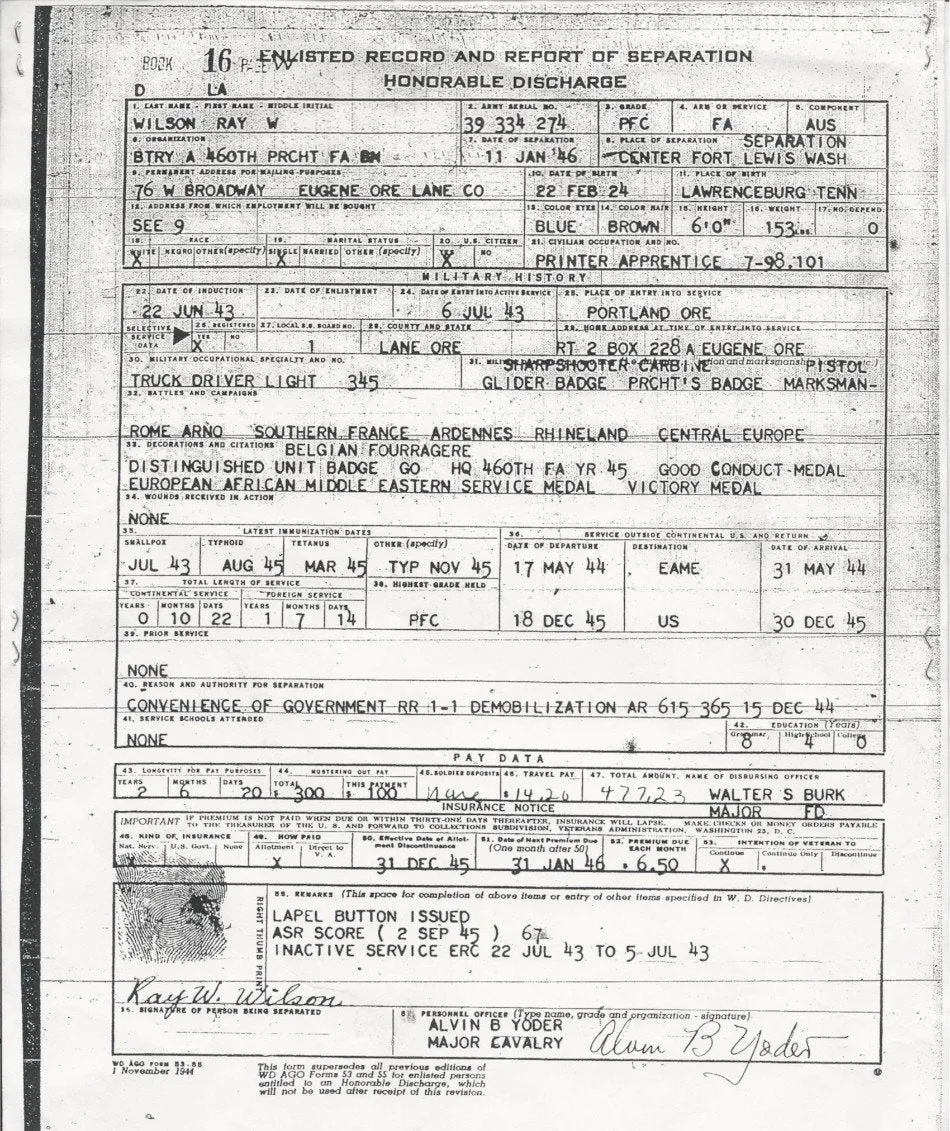 BOOK 16 PAGE
ENLISTED RECORD AND REPORT OF SEPARATION
HONORABLE DISCHARGE
D LA
1. LAST NAME - FIRST NAME - MIDDLE INITIAL 2. ARMY SERIAL NO. 3. GRADE 4. ARM OR SERVICE 5. COMPONENT
WILSON RAY W 39 334 274 PFC FA AUS
6. ORGANIZATION 7. DATE OF SEPARATION 8. PLACE OF SEPARATION SEPARATION
BTRY A 460TH PRCHT FA BN 11 JAN '46 CENTER FORT LEWIS WASH
9. PERMANENT ADDRESS FOR MAILING PURPOSES 10. DATE OF BIRTH 11. PLACE OF BIRTH
76 W BROADWAY EUGENE ORE LANE CO 22 FEB 24 LAWRENCEBURG TENN
12. ADDRESS FROM WHICH EMPLOYMENT WILL BE SOUGHT 13. COLOR EYES 14. COLOR HAIR 15. HEIGHT 16. WEIGHT 17. NO. DEPEND.
SEE 9 BLUE BROWN 6'0" 153 LBS. 0
18. RACE 19. MARITAL STATUS 20. U.S. CITIZEN 21. CIVILIAN OCCUPATION AND NO.
WHITE NEGRO OTHER (specify) SINGLE MARRIED OTHER (specify) YES NO
X X X PRINTER APPRENTICE 7-98.101
MILITARY HISTORY
22. DATE OF INDUCTION 23. DATE OF ENLISTMENT 24. DATE OF ENTRY INTO ACTIVE SERVICE 25. PLACE OF ENTRY INTO SERVICE
22 JUN 43 6 JUL 43 PORTLAND ORE
SELECTIVE SERVICE DATA 26. REGISTERED YES NO 27. LOCAL S.S. BOARD NO. 28. COUNTY AND STATE 29. HOME ADDRESS AT TIME OF ENTRY INTO SERVICE
X 1 LANE ORE RT 2 BOX 228 A EUGENE ORE
30. MILITARY OCCUPATIONAL SPECIALTY AND NO. 31. SHARPSHOOTER CARBINE PISTOL
TRUCK DRIVER LIGHT 345 GLIDER BADGE PRCHT'S BADGE MARKSMAN-
32. BATTLES AND CAMPAIGNS
ROME ARNO SOUTHERN FRANCE ARDENNES RHINELAND CENTRAL EUROPE
33. DECORATIONS AND CITATIONS BELGIAN FOURRAGERE
DISTINGUISHED UNIT BADGE GO HQ 460TH FA YR 45 GOOD CONDUCT MEDAL
EUROPEAN AFRICAN MIDDLE EASTERN SERVICE MEDAL VICTORY MEDAL
34. WOUNDS RECEIVED IN ACTION
NONE
35. LATEST IMMUNIZATION DATES 36. SERVICE OUTSIDE CONTINENTAL U.S. AND RETURN
SMALLPOX TYPHOID TETANUS OTHER (specify) DATE OF DEPARTURE DESTINATION DATE OF ARRIVAL
JUL 43 AUG 45 MAR 45 TYP NOV 45 17 MAY 44 EAME 31 MAY 44
37. TOTAL LENGTH OF SERVICE 38. HIGHEST GRADE HELD
CONTINENTAL SERVICE FOREIGN SERVICE
YEARS MONTHS DAYS YEARS MONTHS DAYS
0 10 22 1 7 14 PFC 18 DEC 45 US 30 DEC 45
39. PRIOR SERVICE
NONE
40. REASON AND AUTHORITY FOR SEPARATION
CONVENIENCE OF GOVERNMENT RR 1-1 DEMOBILIZATION AR 615 365 15 DEC 44
41. SERVICE SCHOOLS ATTENDED 42. EDUCATION (Years)
Grammar High School College
NONE 8 4 0
PAY DATA
43. LONGEVITY FOR PAY PURPOSES 44. MUSTERING OUT PAY 45. SOLDIER DEPOSITS 46. TRAVEL PAY 47. TOTAL AMOUNT, NAME OF DISBURSING OFFICER
YEARS MONTHS DAYS TOTAL THIS PAYMENT
2 6 20 $ 300 $ 100 None $ 14.20 477.23 WALTER S BURK
INSURANCE NOTICE MAJOR FD
IMPORTANT IF PREMIUM IS NOT PAID WHEN DUE OR WITHIN THIRTY-ONE DAYS THEREAFTER, INSURANCE WILL LAPSE. MAKE CHECKS OR MONEY ORDERS PAYABLE
TO THE TREASURER OF THE U. S. AND FORWARD TO COLLECTIONS SUBDIVISION, VETERANS ADMINISTRATION, WASHINGTON 25, D. C.
48. KIND OF INSURANCE 49. HOW PAID 50. Effective Date of Allotment Discontinuance 51. Date of Next Premium Due (One month after 50) 52. PREMIUM DUE EACH MONTH 53. INTENTION OF VETERAN TO
Nat. Serv. U.S. Govt. None Allotment Direct to V. A. Continue Continue Only Discontinue
X X 31 DEC 45 31 JAN 46 $ 6.50 X $
RIGHT THUMB PRINT
55. REMARKS (This space for completion of above items or entry of other items specified in W. D. Directives)
LAPEL BUTTON ISSUED
ASR SCORE ( 2 SEP 45 ) 67
INACTIVE SERVICE ERC 22 JUL 43 TO 5 JUL 43
Ray W. Wilson
SIGNATURE OF PERSON BEING SEPARATED
PERSONNEL OFFICER (Type name, grade and organization - signature)
ALVIN B YODER
MAJOR CAVALRY Alvin B Yoder
WD AGO FORM 53-55
1 November 1944
This form supersedes all previous editions of
WD AGO Forms 53 and 55 for enlisted persons
entitled to an Honorable Discharge, which
will not be used after receipt of this revision.